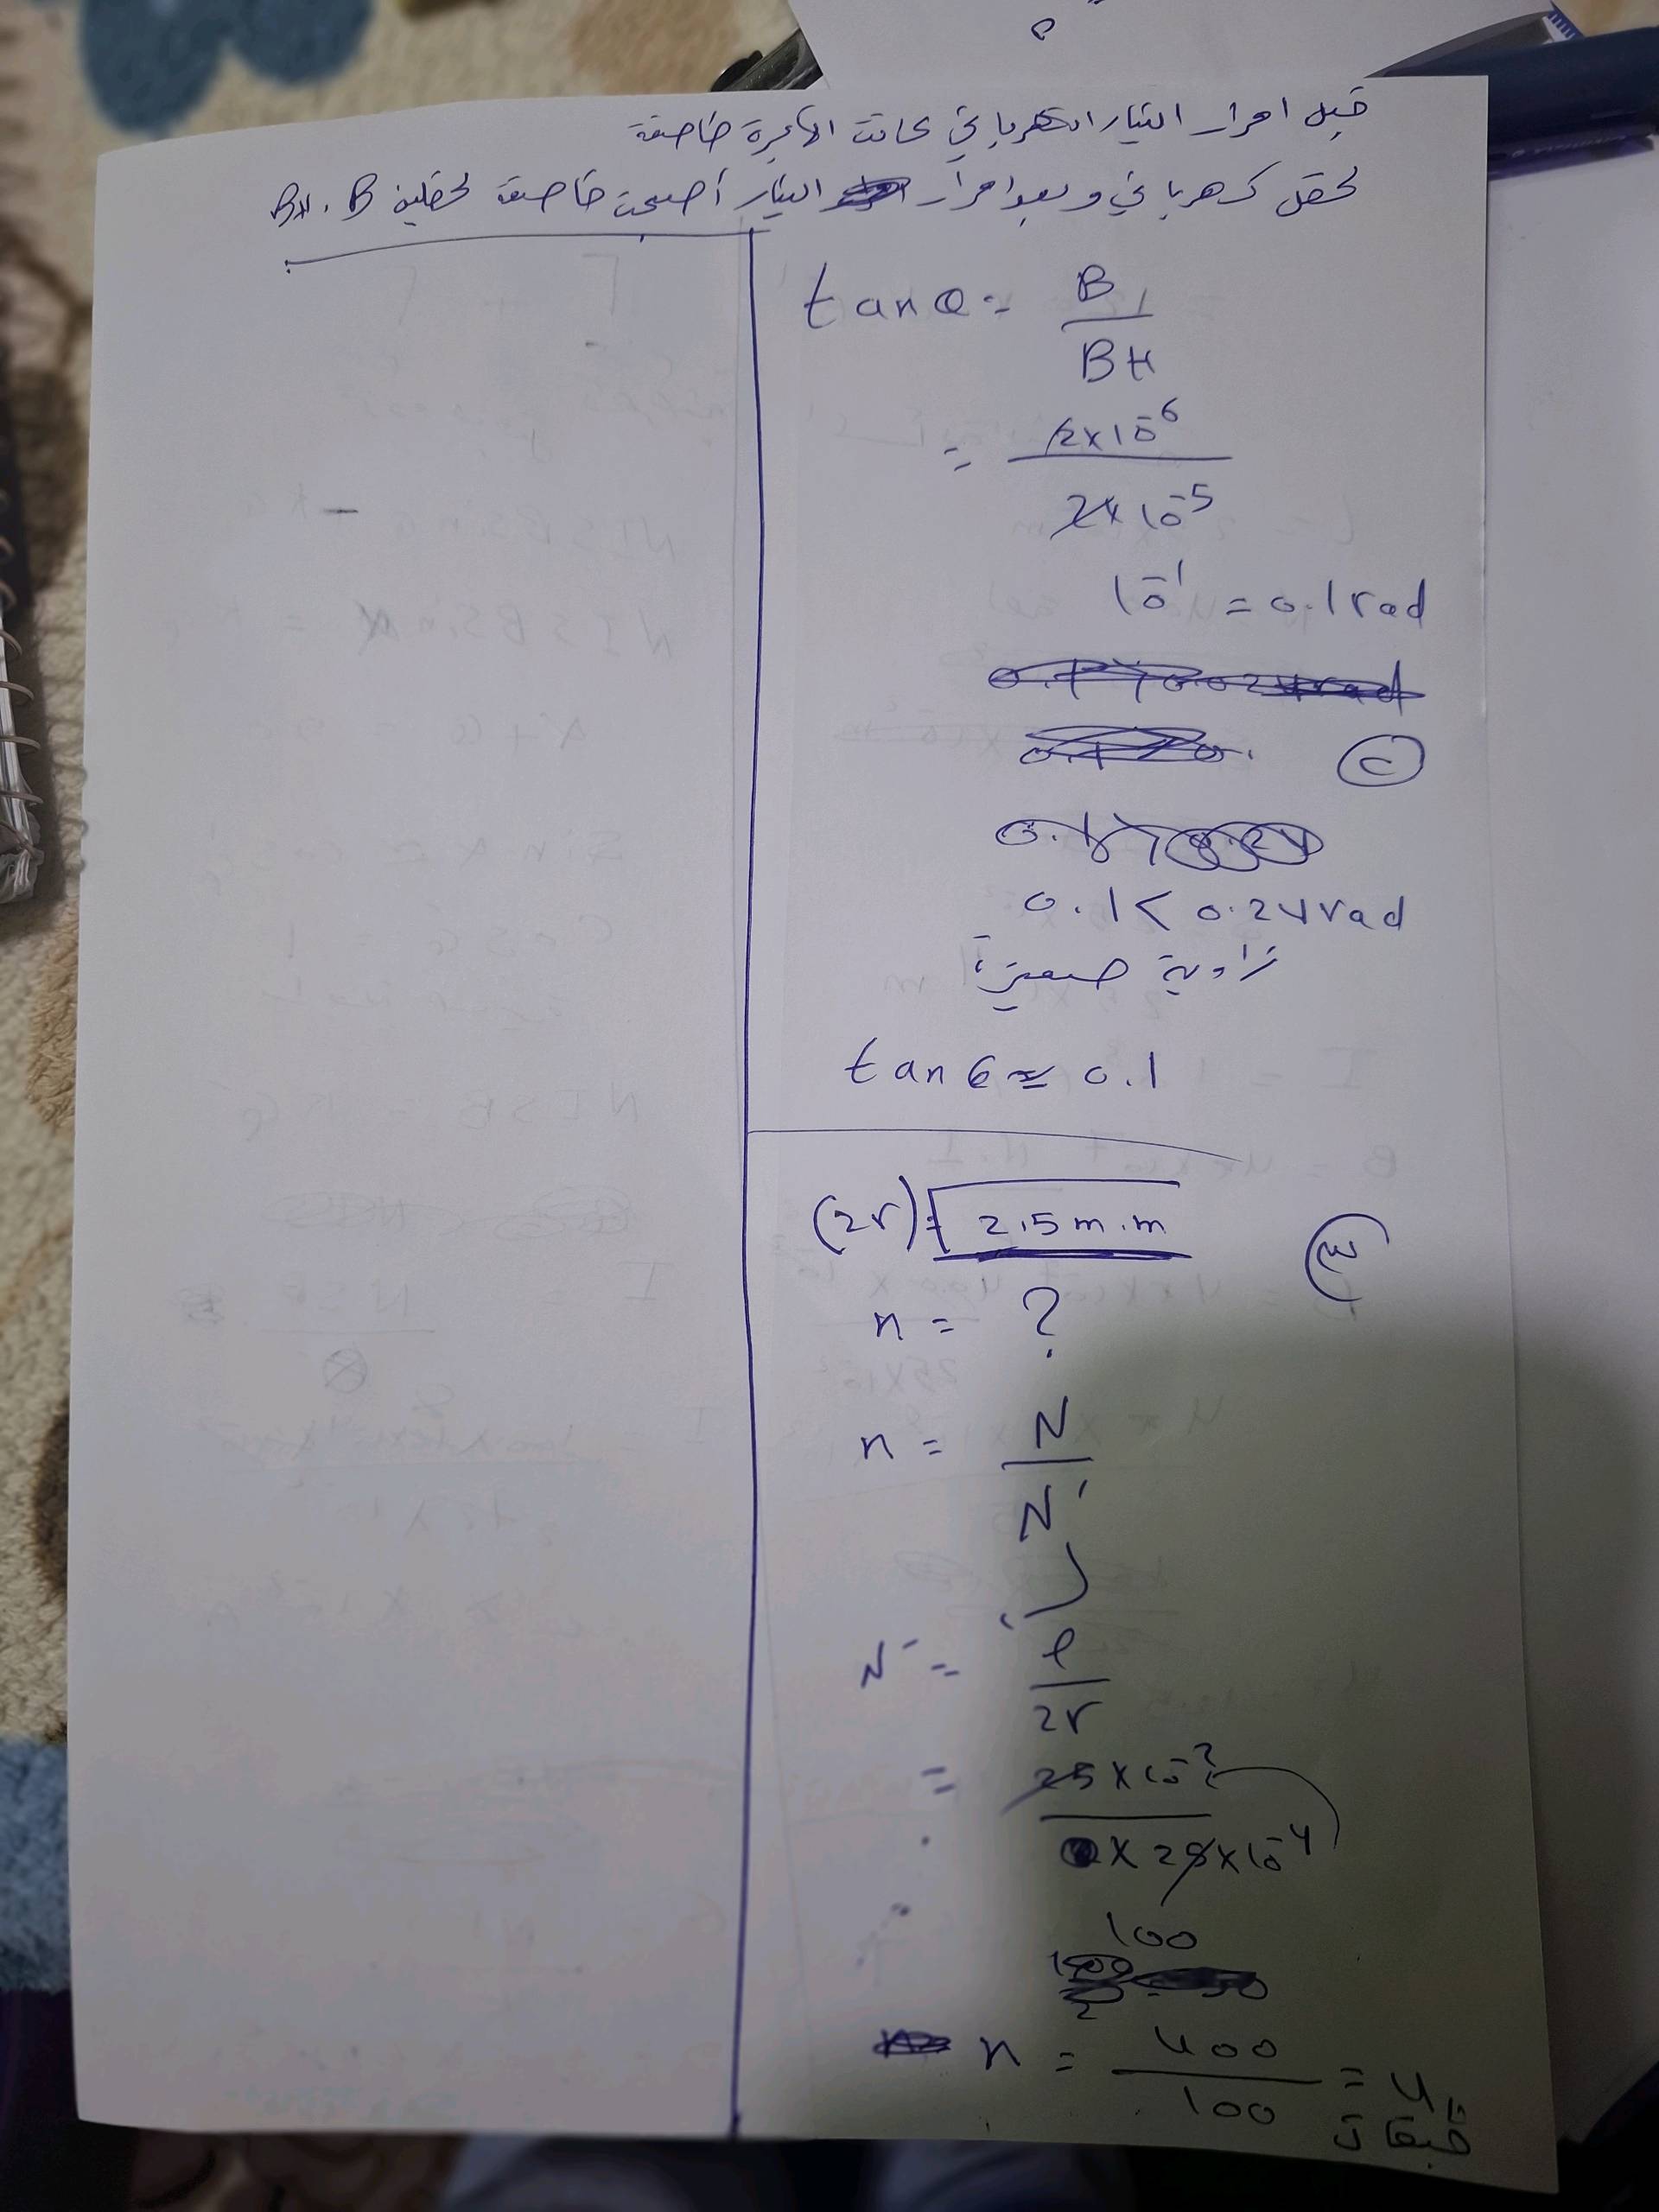 قبل امرار التيار الكهربائي كانت الابرة خاضعة
لحقل كهربائي وبعد امرار التيار أصبحت خاضعة لحقلين B، BH
tanθ = B / BH
= 2x10^-6 / 2x10^-5
10^-1 = 0.1 rad
0.1 < 0.24 rad
زاوية صغيرة
tan θ ≈ 0.1
(2r) = 2.5 m.m
n = ?
n = N / N'
N' = l / 2r
= 25 x 10^-2 / x 25 x 10^-4
100
n = 400 / 100 = 4
طبقات